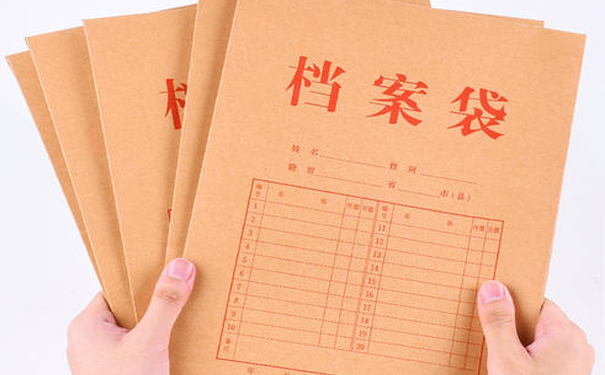 档案袋
姓名 性别
籍贯 省 市(县)
编号 名称 份数 页数 编号 名称 份数 页数
1 11
2 12
3 13
4 14
5 15
6 16
7 17
8 18
9 19
10 20
备注
年
档